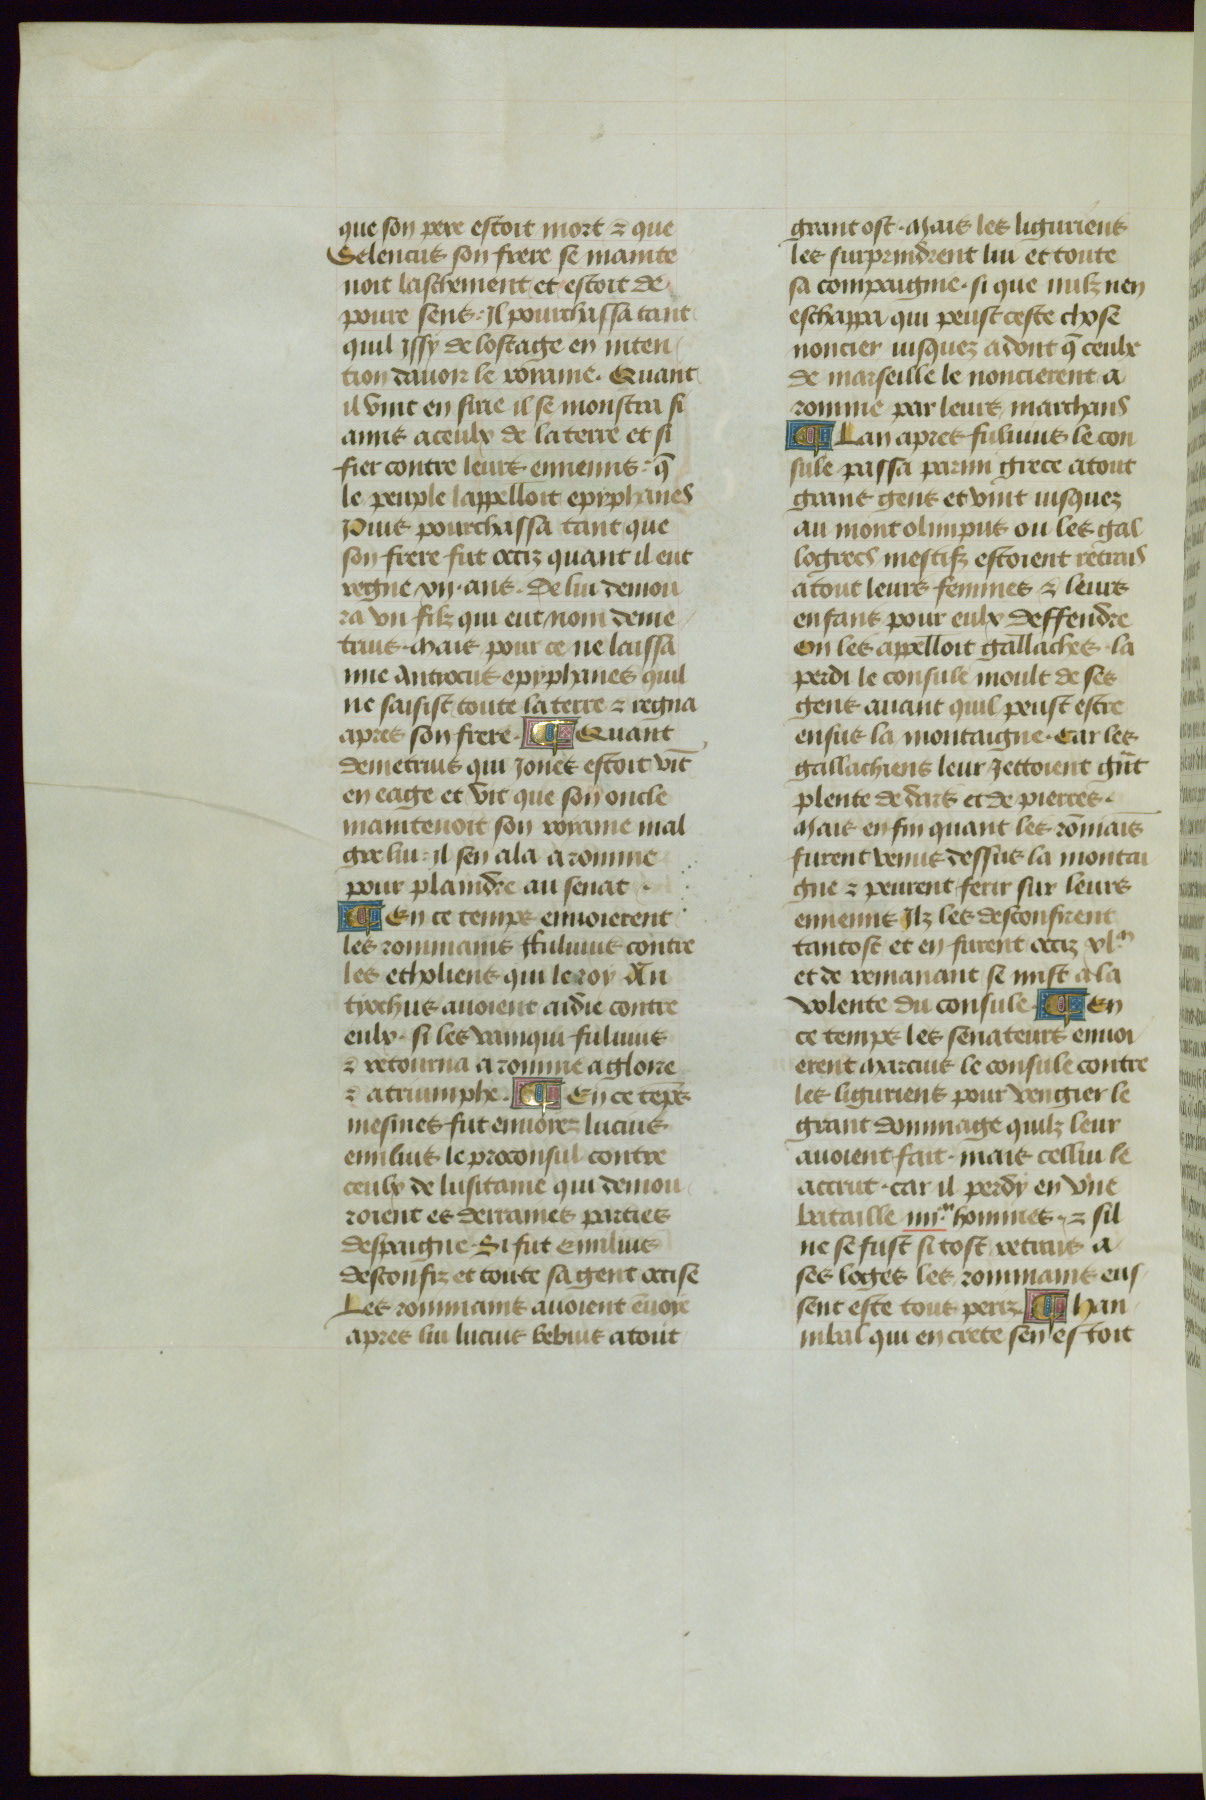 que son pere estoit mort ⁊ que
Seleucus son frere se mainte
noit laschement et estoit de
poure sens. Il pourchassa tant
quil issy de lostage en inten
tion dauoir le royaume. Quant
il vint en sirie il se monstra si
amis a ceulx de la terre et si
fier contre leurs ennemis. q̄
le peuple lappelloit epyphanes
Puis pourchassa tant que
son frere fut occiz quant il eut
regne vij. ans. De lui demou
ra vn filz qui eut nom deme
trius. Mais pour ce ne laissa
mie Antiocus epyphanes quil
ne saisist toute la terre ⁊ regna
apres son frere. ¶ Quant
demetrius qui jones estoit vit
en eage et vit que son oncle
maintenoit son royaume mal
gre lui. il sen ala a romme
pour plaindre au senat.
¶ En ce temps enuoierent
les rommains ffuluius contre
les etholiens qui le roy An
tyochus auoient aidie contre
eulx. si les vainqui fuluius
⁊ retourna a romme a gloire
⁊ a triumphe. ¶ En ce tēps
mesmes fut enuoyez lucius
emilius le proconsul contre
ceulx de lusitanie qui demou
roient es derraines parties
despaigne. Si fut emilius
desconfiz et toute sa gent occise
Les rommains auoient ēuoie
apres lui lucius bebius atout
grant ost. Mais les liguriens
les surprindrent lui et toute
sa compaignie. si que nulz nen
eschappa qui peust ceste chose
noncier iusquez adont q̄ ceulx
de marseille le noncierent a
romme par leurs marchans
¶ Lan apres fuluius le con
sule passa parmi grece atout
grans gens et vint iusquez
au mont olimpus ou les gal
logrecs mestifz estoient retrais
atout leurs femmes ⁊ leurs
enfans pour eulx deffendre
On les appelloit gallaches. la
perdi le consule moult de ses
gens auant quil peust estre
ensus la montaigne. Car les
gallachiens leur jettoient grāt
plente de dars et de pierres.
Mais en fin quant les rōmains
furent venus dessus la montai
gne ⁊ peurent ferir sur leurs
ennemis Ilz les desconfirent
tantost et en furent occiz xl.m
et de remanant se mist a la
volente du consule. ¶ En
ce temps les senateurs enuoi
erent Marcius le consule contre
les liguriens pour vengier le
grant dommage quilz leur
auoient fait. mais cellui le
accrut. car il perdy en vne
bataille iiij.m hommes. ⁊ sil
ne se fust si tost retrais a
ses loges les rommains eus
sent este tous periz. ¶ han
nibal qui en crete sen estoit